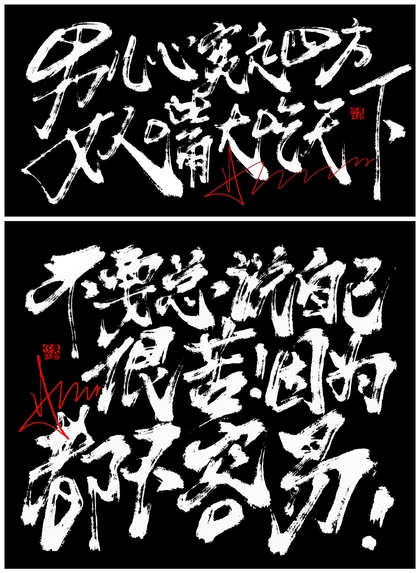 男儿心宽走四方
女人嘴大吃天下
不要总说自己
很苦!因为
都不容易!